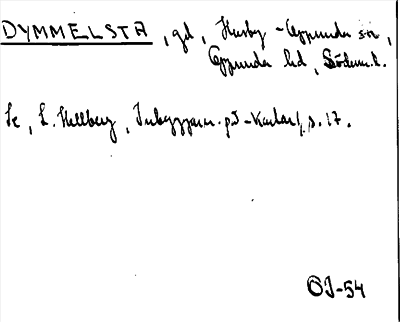 DYMMELSTA, gd, Husby-Oppunda sn,
Oppunda hd, Söderm.l.
Se, L. Hellberg, Inbyggarn. på -karlar, s. 17.
OJ-54